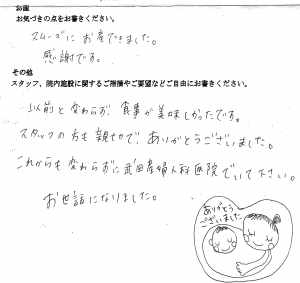 お産
お気づきの点をお書きください。
スムーズに お産できました。
感謝です。
その他
スタッフ、院内施設に関するご指摘やご要望などご自由にお書きください。
以前と変わらず、食事が美味しかったです。
スタッフの方も親切で、ありがとうございました。
これからも変わらずに武田産婦人科医院でいて下さい。
お世話になりました。
ありがとう
ございました